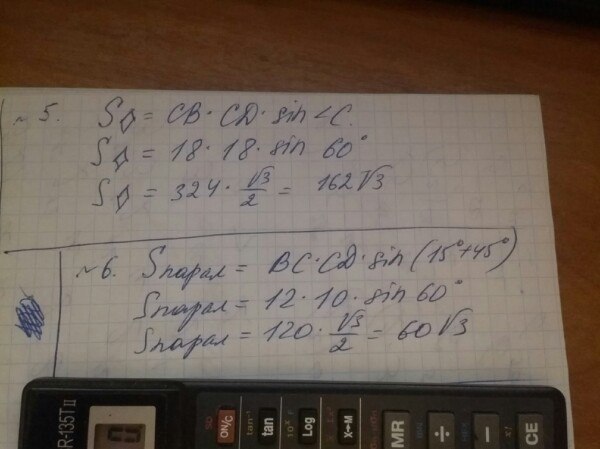 ~5. S◊ = CB · CD · sin <C.
S◊ = 18 · 18 · sin 60°
S◊ = 324 · √3/2 = 162√3
~6. Sпарал = BC · CD · sin (15°+45°)
Sпарал = 12 · 10 · sin 60°
Sпарал = 120 · √3/2 = 60√3
R-135T II
ON/C
tan⁻¹
tan
10ˣ
Log
X↔M
MR
÷
−
CE